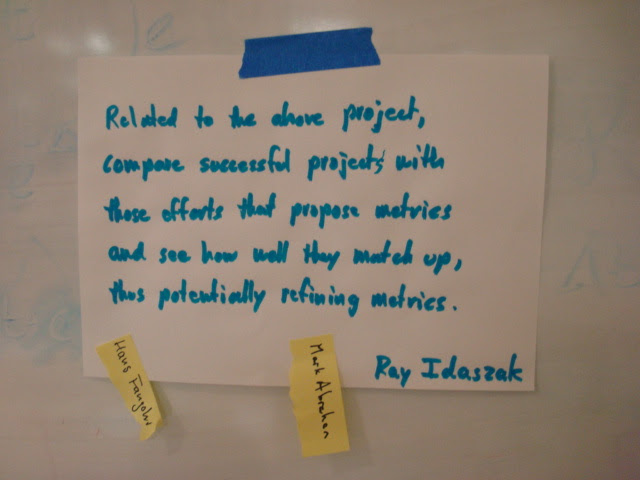 Related to the above project,
compare successful projects with
those efforts that propose metrics
and see how well they match up,
thus potentially refining metrics.
Ray Idaszak
Hans Fangohr
Mark Abraham